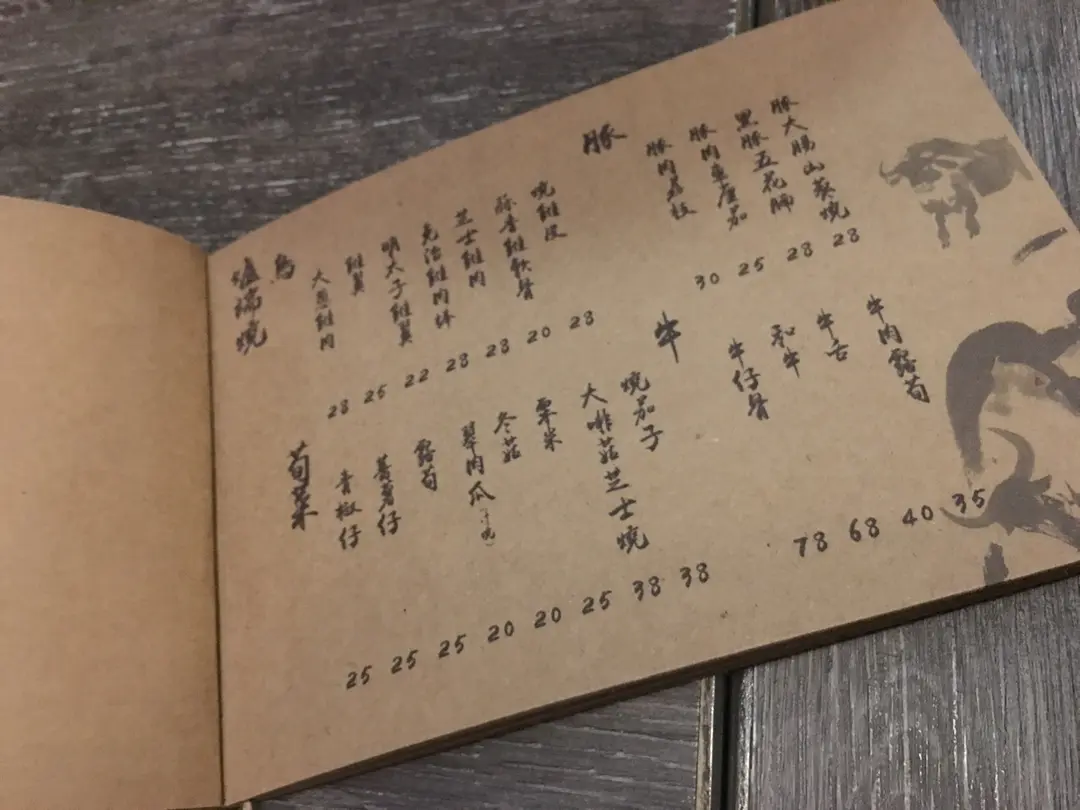 爐端燒
鳥
大蔥雞肉
雞翼
明太子雞翼
免治雞肉棒
芝士雞肉
雞軟骨
燒雞皮
28 25 22 28 28 20 28
豚
豚肉荔枝
豚肉車厘茄
黑豚五花腩
豚大腸山葵燒
30 25 28 28
菜
青椒仔
蕃薯仔
露荀
翠肉瓜
冬菇
粟米
燒茄子
大啡菇芝士燒
25 25 25 20 20 25 38 38
牛
牛仔骨
和牛
牛舌
牛肉露荀
78 68 40 35